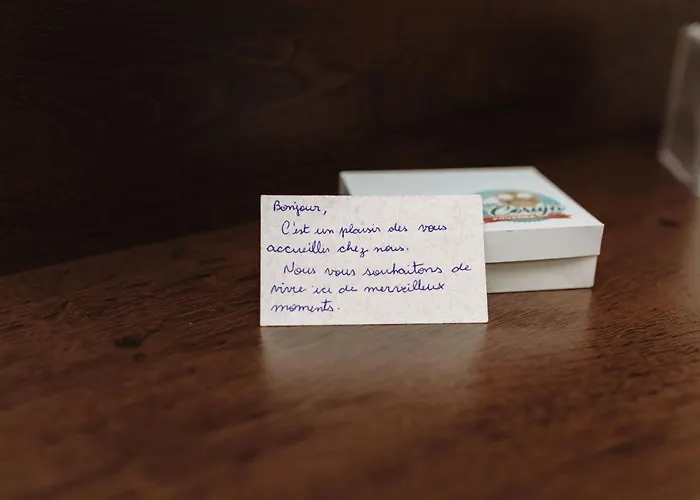 Bonjour,
C'est un plaisir des vous
accueillir chez nous.
Nous vous souhaitons de
vivre ici de merveilleux
moments.
Coruja